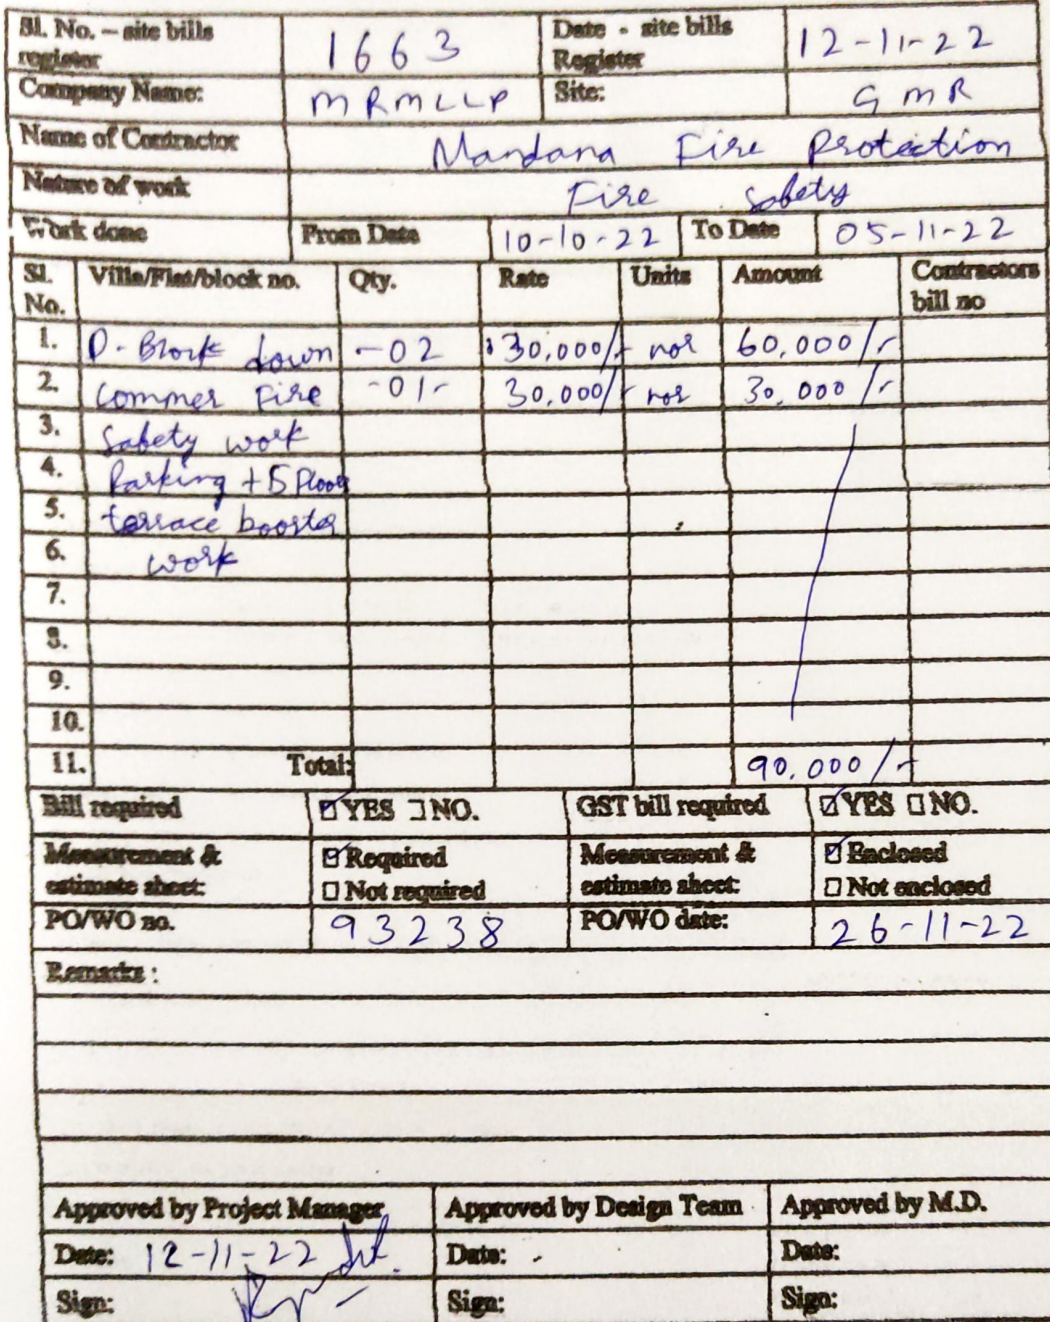 Sl. No. – site bills register 1663 Date - site bills Register 12-11-22
Company Name: MRMLLP Site: GMR
Name of Contractor Mandana Fire Protection
Nature of work Fire Safety
Work done From Date 10-10-22 To Date 05-11-22
Sl. No. Villa/Flat/block no. Qty. Rate Units Amount Contractors bill no
1. D-Block down -02 30,000/- nos 60,000/-
2. Commer Fire -01- 30,000/- nos 30,000/-
3. Safety work
4. Parking +5 Floor
5. terrace booster
6. work
7.
8.
9.
10.
11. Total: 90,000/-
Bill required ☑ YES ☐ NO. GST bill required ☑ YES ☐ NO.
Measurement & estimate sheet: ☑ Required ☐ Not required Measurement & estimate sheet: ☑ Enclosed ☐ Not enclosed
PO/WO no. 93238 PO/WO date: 26-11-22
Remarks :
Approved by Project Manager Approved by Design Team Approved by M.D.
Date: 12-11-22 Date: - Date:
Sign: Sign: Sign: